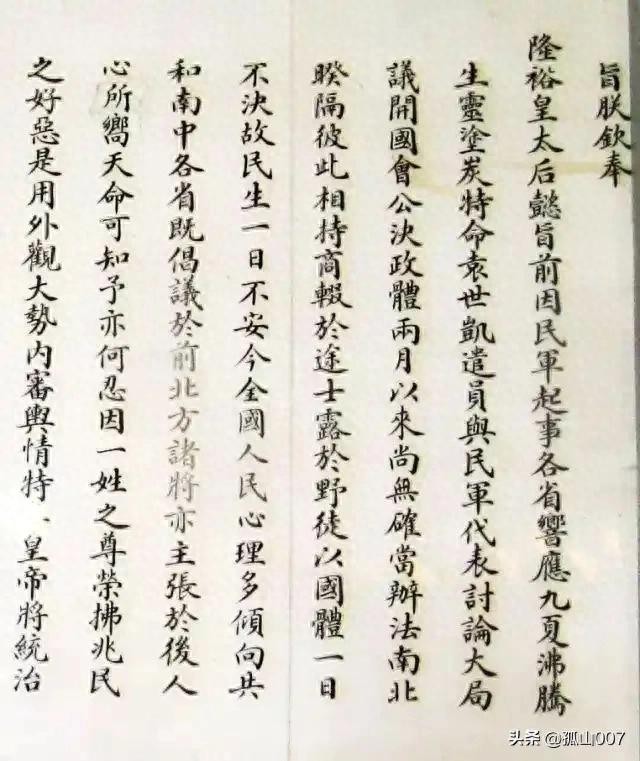 旨朕欽奉
隆裕皇太后懿旨前因民軍起事各省響應九夏沸騰
生靈塗炭特命袁世凱遣員與民軍代表討論大局
議開國會公決政體兩月以來尚無確當辦法南北
暌隔彼此相持商輟於途士露於野徒以國體一日
不決故民生一日不安今全國人民心理多傾向共
和南中各省既倡議於前北方諸將亦主張於後人
心所嚮天命可知予亦何忍因一姓之尊榮拂兆民
之好惡是用外觀大勢內審輿情特、皇帝將統治
头条 @孤山007